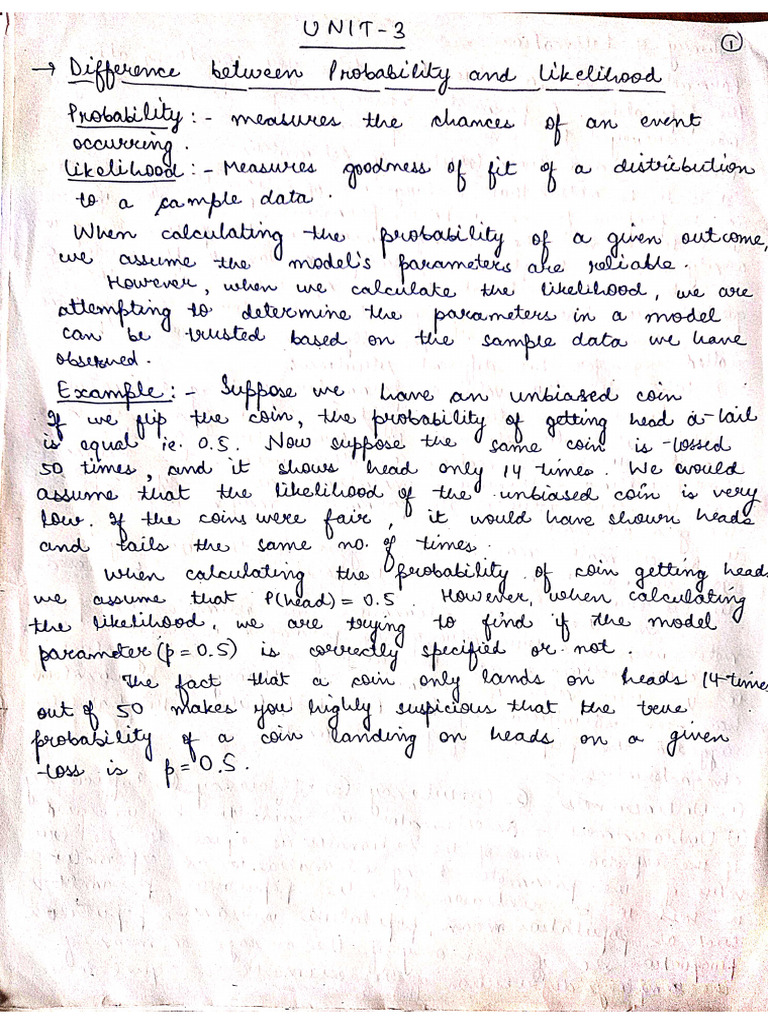 UNIT-3
①
→ Difference between Probability and Likelihood
Probability :- measures the chances of an event
occurring.
Likelihood :- Measures goodness of fit of a distribution
to a sample data.
When calculating the probability of a given outcome,
we assume the model's parameters are reliable.
However, when we calculate the likelihood, we are
attempting to determine the parameters in a model
can be trusted based on the sample data we have
observed.
Example :- Suppose we have an unbiased coin
If we flip the coin, the probability of getting head a tail
is equal ie. 0.5. Now suppose the same coin is tossed
50 times, and it shows head only 14 times. We would
assume that the likelihood of the unbiased coin is very
low. If the coins were fair, it would have shown heads
and tails the same no. of times.
When calculating the probability of coin getting heads
we assume that P(head) = 0.5. However, when calculating
the likelihood, we are trying to find if the model
parameter (p = 0.5) is correctly specified or not.
The fact that a coin only lands on heads 14 times
out of 50 makes you highly suspicious that the true
probability of a coin landing on heads on a given
toss is p = 0.5.